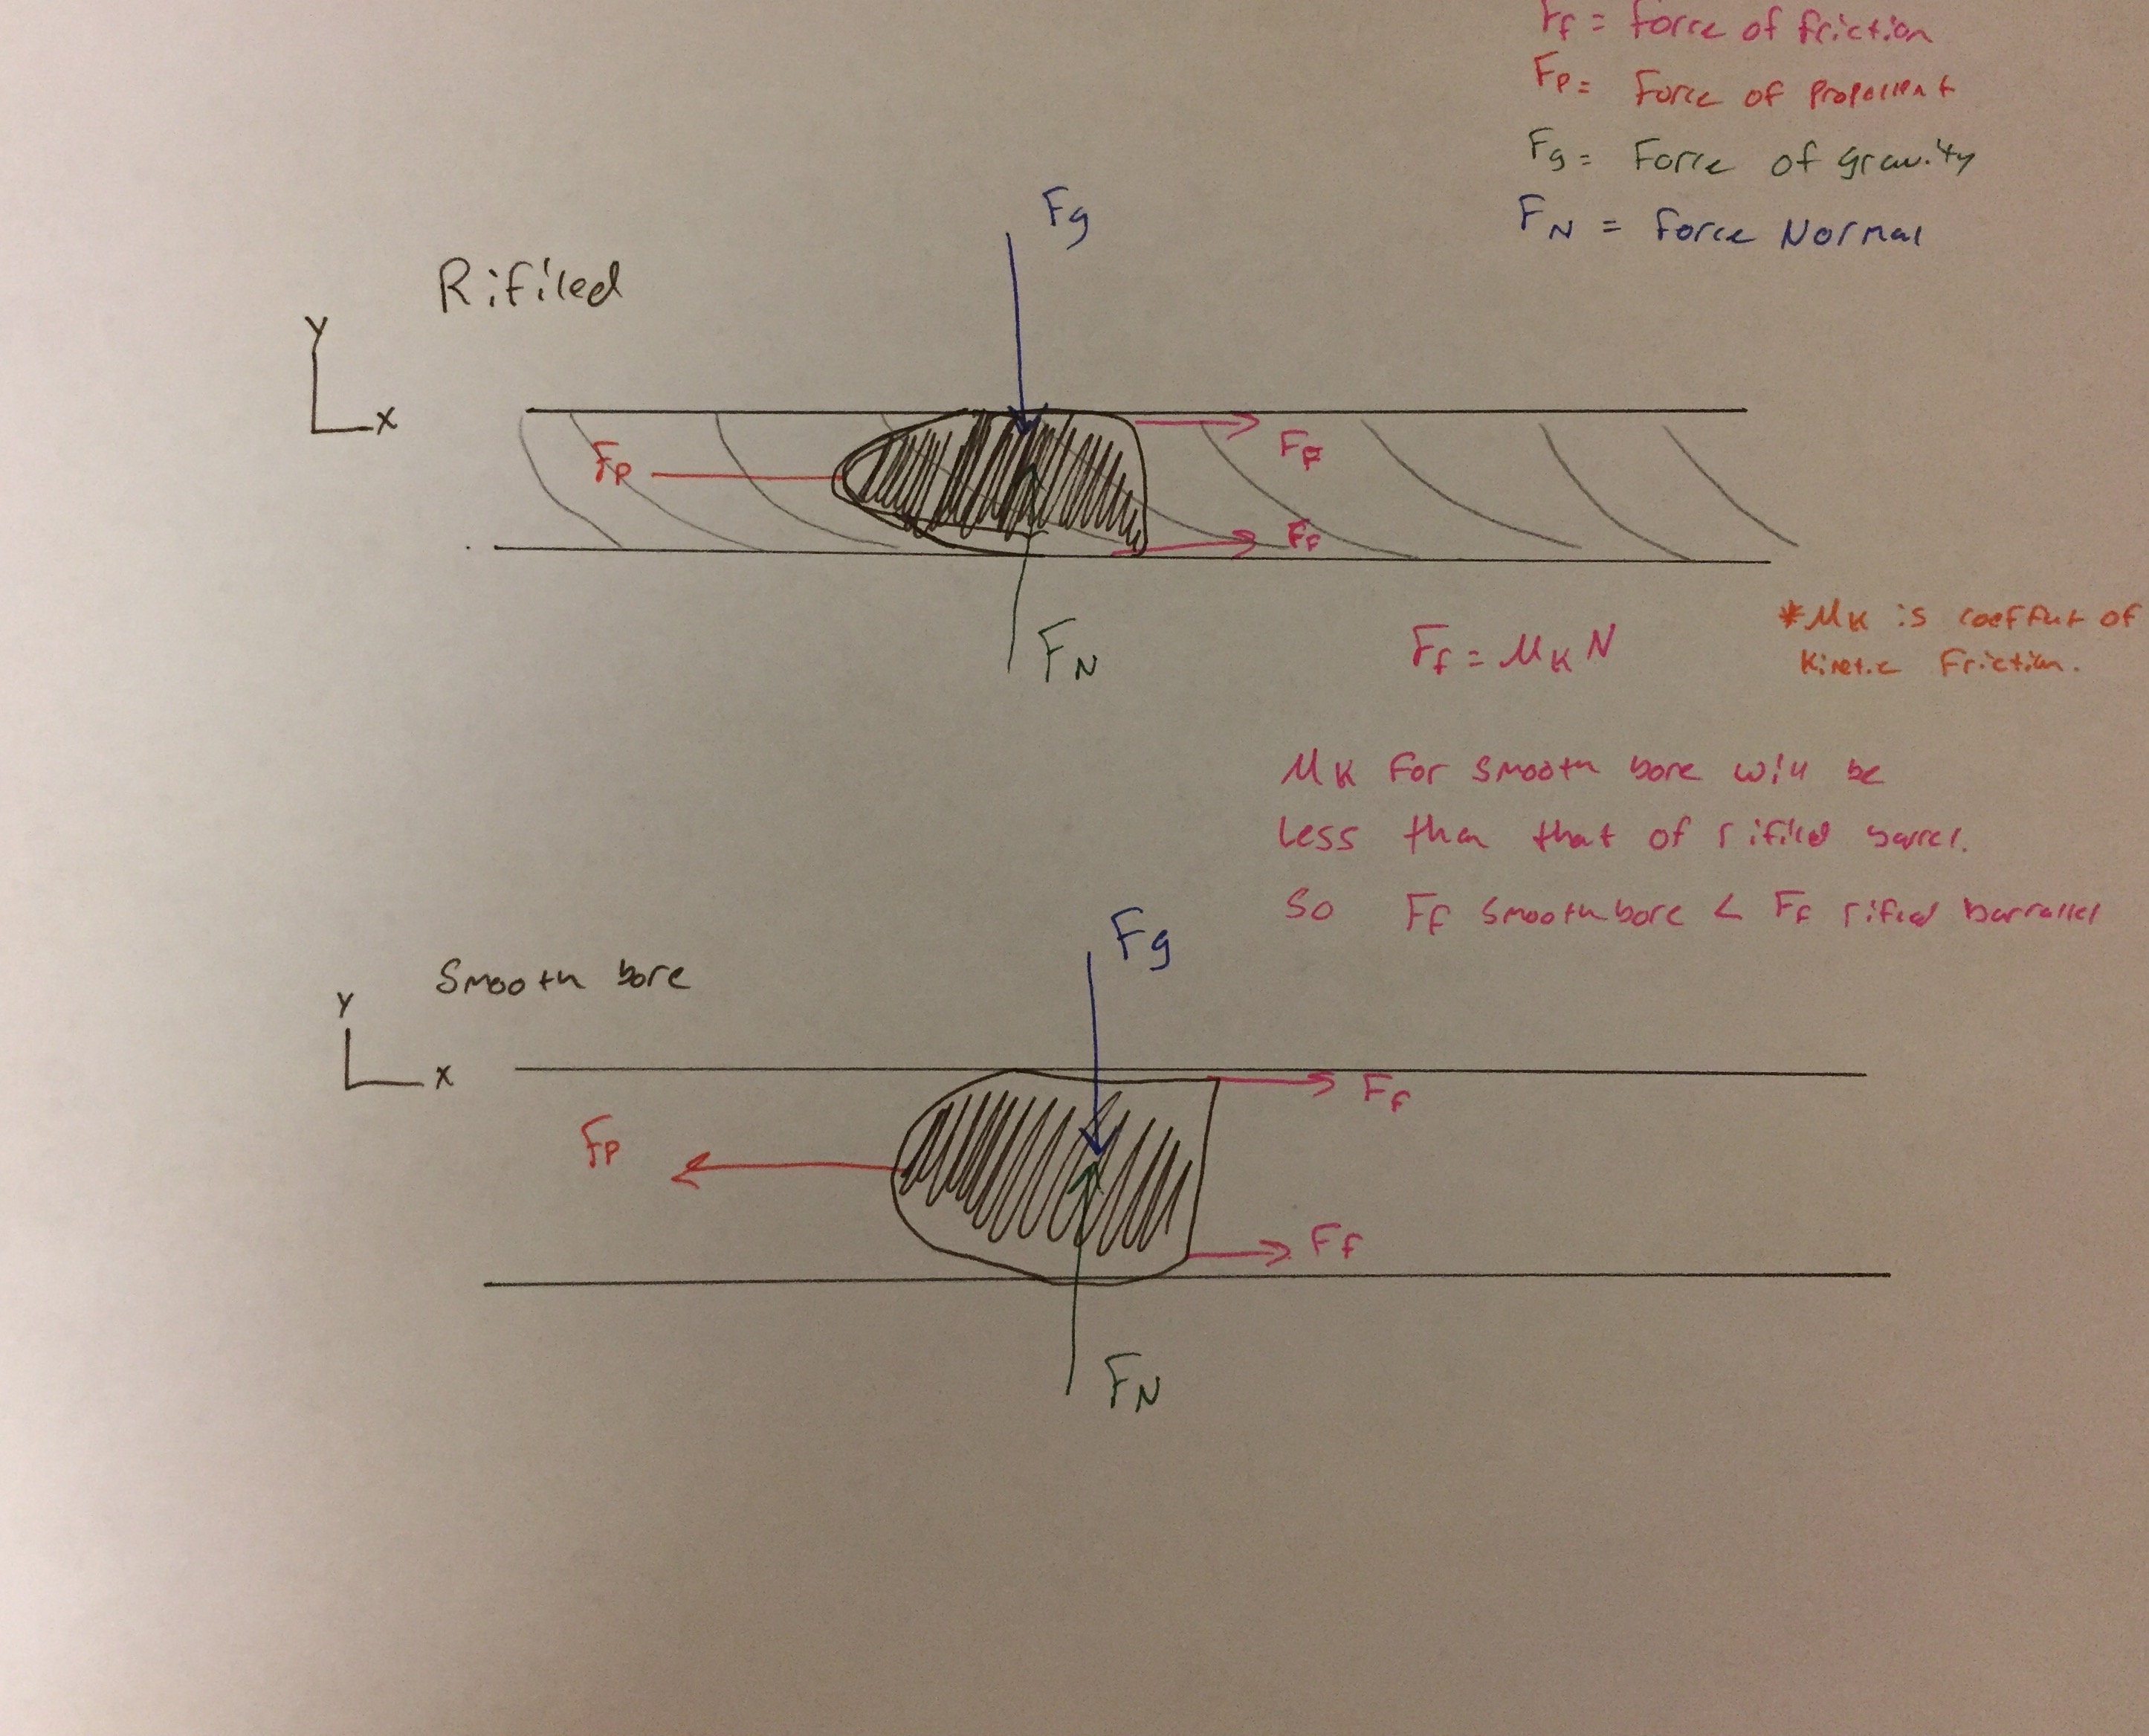 Ff = Force of friction
Fp = Force of Propellent
Fg = Force of gravity
FN = Force Normal
Fg
Rifiled
Y
X
Fp
FF
Ff
FN
Ff = MK N
*MK is coeffut of
Kinetic Friction.
MK For smooth bore will be
Less than that of rifiled barrel.
So Ff smoothbore < Ff rifled barrallel
Fg
Smooth bore
Y
X
Ff
Fp
Ff
FN